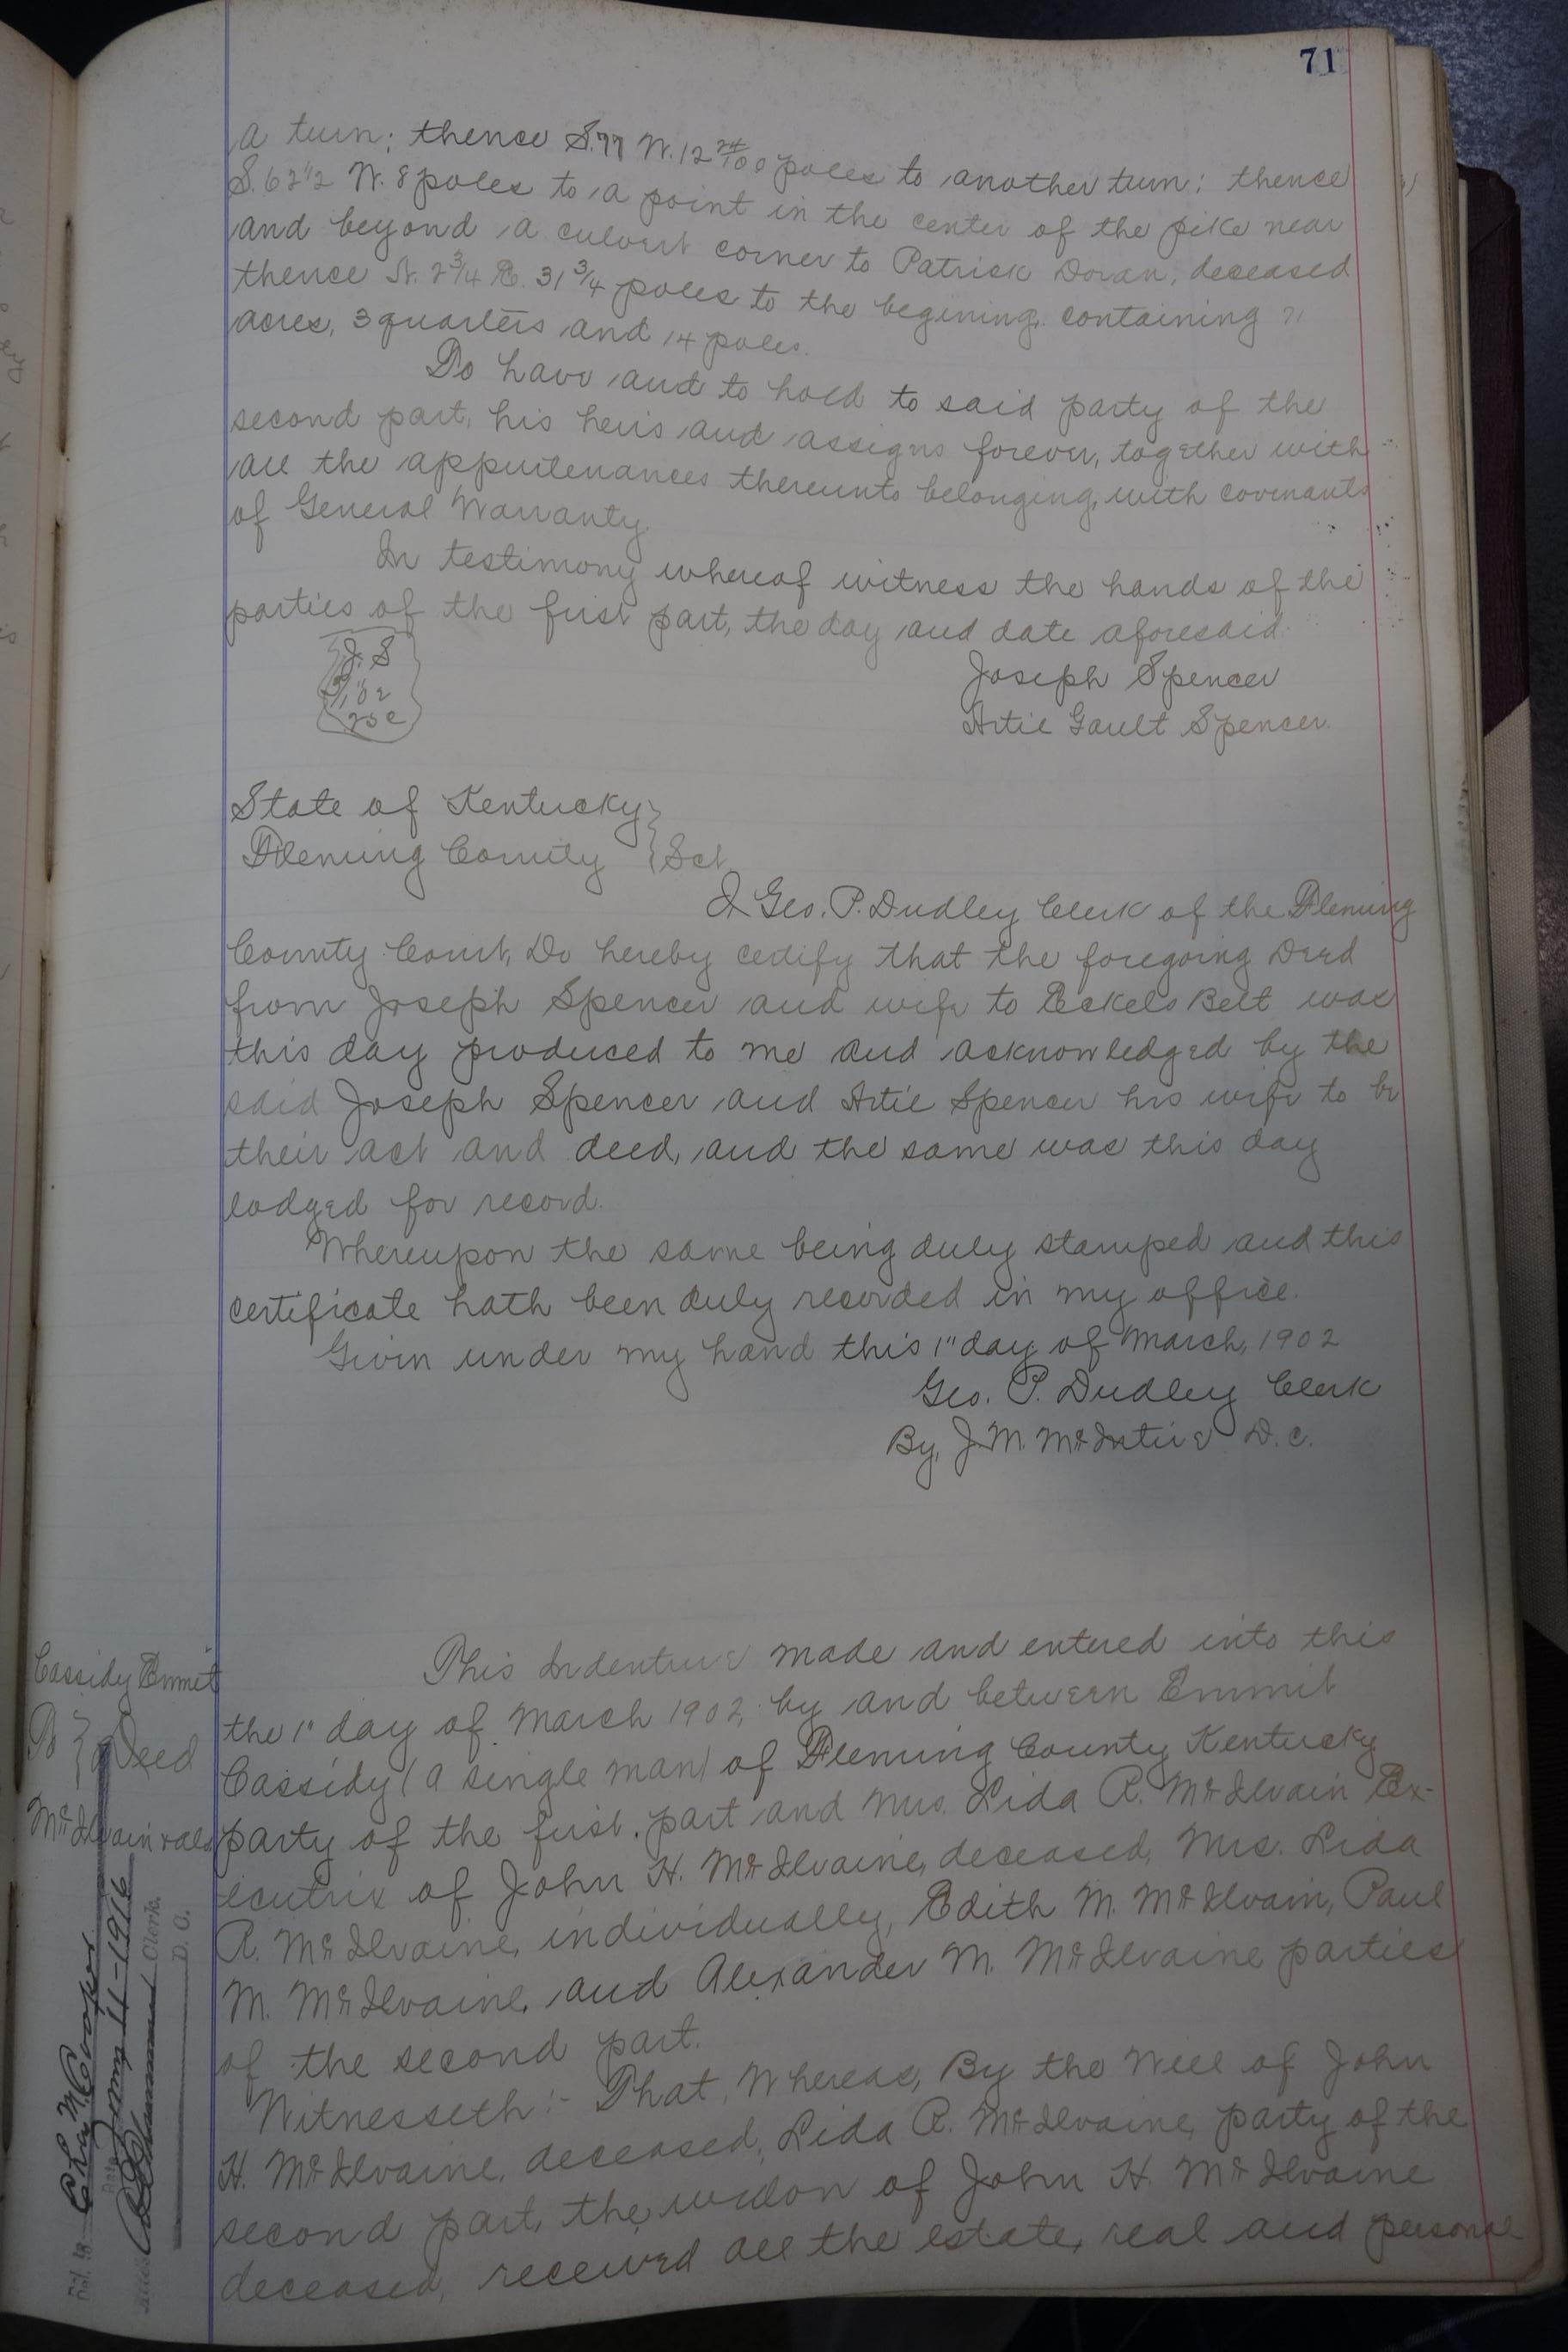 71
a turn; thence S. 77 W. 12 24/100 poles to another turn; thence
S. 62 1/2 W. 8 poles to a point in the center of the pike near
and beyond a culvert corner to Patrick Doran, deceased
thence N. 2 3/4 E. 31 3/4 poles to the begining, containing
acres, 3 quarters and 14 poles.
To have and to hold to said party of the
second part, his heirs and assigns forever, together with
all the appurtenances thereunto belonging, with covenants
of General Warranty.
In testimony whereof witness the hands of the
parties of the first part, the day and date aforesaid.
J. S
25c
Joseph Spencer
Artie Gault Spencer.
State of Kentucky }
Fleming County } Sct.
I Geo. P. Dudley Clerk of the Fleming
County Court, Do hereby certify that the foregoing Deed
from Joseph Spencer and wife to Eckels Belt was
this day produced to me and acknowledged by the
said Joseph Spencer and Artie Spencer his wife to be
their act and deed, and the same was this day
lodged for record.
Whereupon the same being duly stamped and this
certificate hath been duly recorded in my office.
Given under my hand this 1" day of March, 1902
Geo. P. Dudley Clerk
By, J. M. McIntire D. C.
Cassidy Emmit
To } Deed
McIlvain &als
This Indenture made and entered into this
the 1" day of March 1902, by and between Emmit
Cassidy (a single man) of Fleming County Kentucky
party of the first part and Mrs. Lida R. McIlvain Ex-
ecutrix of John H. McIlvaine, deceased, Mrs. Lida
R. McIlvaine, individually, Edith M. McIlvain, Paul
M. McIlvaine, and Alexander M. McIlvaine parties
of the second part.
Witnesseth:- That, Whereas, By the Will of John
H. McIlvaine, deceased, Lida R. McIlvaine, party of the
second part, the widow of John H. McIlvaine
deceased, received all the estate, real and personal
Del. to Chas. M. Cooper
Date Jany 11-1916
Clerk.
D. C.